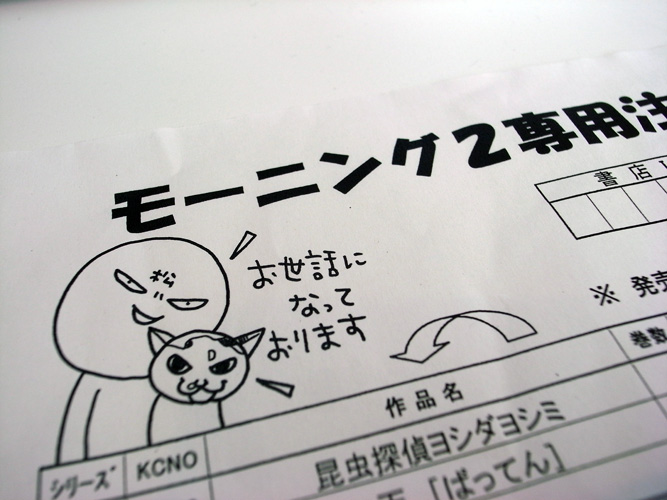 モーニング2専用注
書店
お世話に
なって
おります
松
D
※ 発売
シリーズ KCNO 作品名 巻数
昆虫探偵ヨシダヨシミ
雨「ばってん」